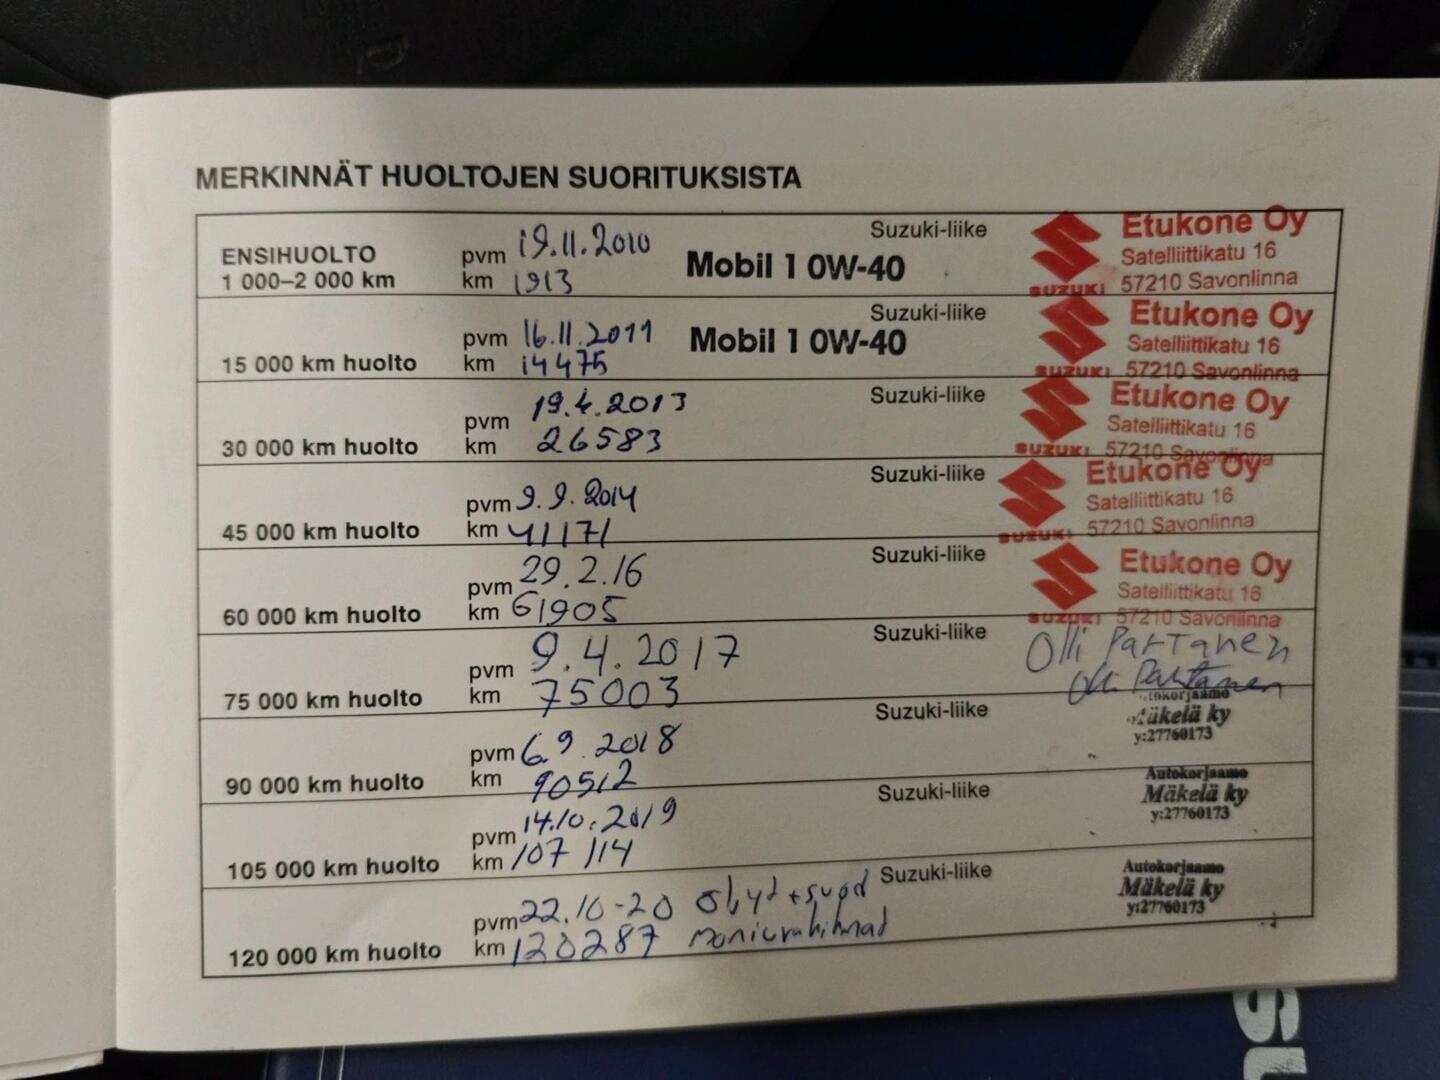 MERKINNÄT HUOLTOJEN SUORITUKSISTA
ENSIHUOLTO
1 000–2 000 km
pvm 19.11.2010
km 1913
Mobil 1 0W-40
Suzuki-liike
SUZUKI
Etukone Oy
Satelliittikatu 16
57210 Savonlinna
15 000 km huolto
pvm 16.11.2011
km 14475
Mobil 1 0W-40
Suzuki-liike
SUZUKI
Etukone Oy
Satelliittikatu 16
57210 Savonlinna
30 000 km huolto
pvm 19.4.2013
km 26583
Suzuki-liike
SUZUKI
Etukone Oy
Satelliittikatu 16
57210 Savonlinna
45 000 km huolto
pvm 9.9.2014
km 41171
Suzuki-liike
SUZUKI
Etukone Oy
Satelliittikatu 16
57210 Savonlinna
60 000 km huolto
pvm 29.2.16
km 61905
Suzuki-liike
SUZUKI
Etukone Oy
Satelliittikatu 16
57210 Savonlinna
75 000 km huolto
pvm 9.4.2017
km 75003
Suzuki-liike
Olli Partanen
Olli Partanen
90 000 km huolto
pvm 6.9.2018
km 90512
Suzuki-liike
Autokorjaamo
Mäkelä ky
y:27760173
105 000 km huolto
pvm 14.10.2019
km 107 114
Suzuki-liike
Autokorjaamo
Mäkelä ky
y:27760173
120 000 km huolto
pvm 22.10-20 öljyt+suod
km 120287
Suzuki-liike
Autokorjaamo
Mäkelä ky
y:27760173
SU